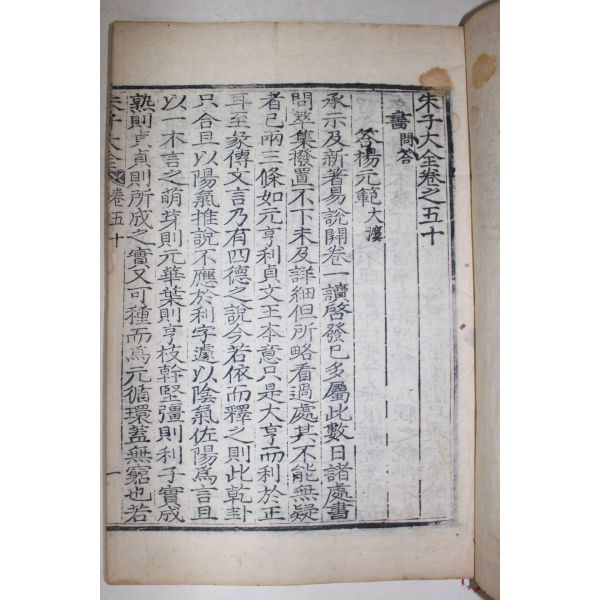 朱子大全卷之五十
書問答
答楊元範大灋
承示及新著易說開卷一讀啓發已多屬此數日諸處書
問萃集撥置不下未及詳細但所略看過處其不能無疑
者已兩三條如元亨利貞文王本意只是大亨而利於正
耳至彖傳文言乃有四德之說今若依而釋之則此乾卦
只合且以陽氣推說不應於利字遽以陰氣佐陽爲言且
以一木言之萌芽則元華葉則亨枝幹堅彊則利子實成
熟則貞貞則所成之實又可種而爲元循環蓋無窮也若
朱子大全 卷五十 一